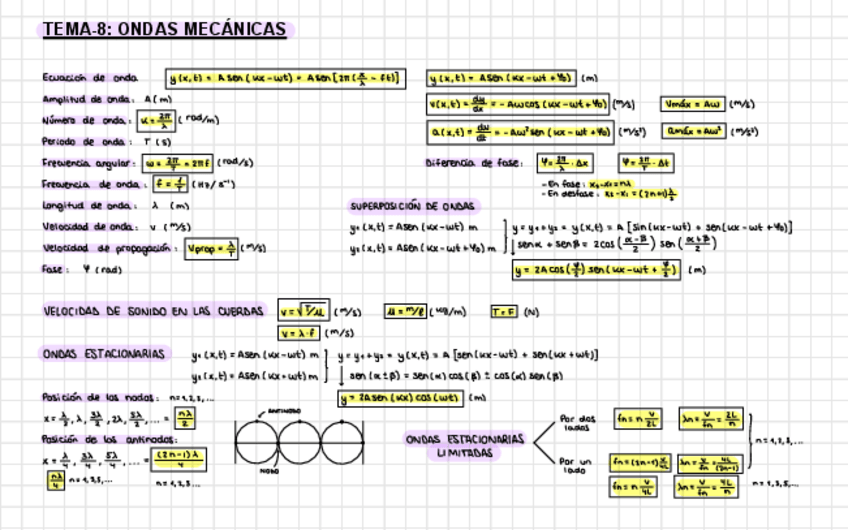 TEMA-8: ONDAS MECÁNICAS
Ecuación de onda y(x,t) = Asen(kx-wt) = Asen[2π(x/λ - ft)]
Amplitud de onda: A(m)
Número de onda: k = 2π/λ (rad/m)
Periodo de onda: T(s)
Frecuencia angular: w = 2π/T = 2πf (rad/s)
Frecuencia de onda: f = 1/T (Hz/s⁻¹)
Longitud de onda: λ (m)
Velocidad de onda: v (m/s)
Velocidad de propagación: Vprop = λ/T (m/s)
Fase: φ (rad)
y(x,t) = Asen(kx-wt+φ₀) (m)
v(x,t) = dy/dx = -Awcos(kx-wt+φ₀) (m/s) Vmáx = Aw (m/s)
a(x,t) = dv/dt = -Aw²sen(kx-wt+φ₀) (m/s²) amáx = Aw² (m/s²)
Diferencia de fase: φ = 2π/λ · Δx φ = 2π/T · Δt
- En fase: x₂-x₁ = nλ
- En desfase: x₂-x₁ = (2n+1)λ/2
SUPERPOSICIÓN DE ONDAS
y₁(x,t) = Asen(kx-wt) m
y₂(x,t) = Asen(kx-wt+φ₀) m
y = y₁+y₂ = y(x,t) = A[sin(kx-wt) + sen(kx-wt+φ₀)]
senα + senβ = 2cos(α-β/2) sen(α+β/2)
y = 2Acos(φ/2) sen(kx-wt+φ/2) (m)
VELOCIDAD DE SONIDO EN LAS CUERDAS v = √T/μ (m/s) μ = m/ℓ (kg/m) T = F (N)
v = λ·f (m/s)
ONDAS ESTACIONARIAS
y₁(x,t) = Asen(kx-wt) m
y₂(x,t) = Asen(kx+wt) m
y = y₁+y₂ = y(x,t) = A[sen(kx-wt) + sen(kx+wt)]
sen(α±β) = sen(α)cos(β) ± cos(α)sen(β)
y = 2Asen(kx)cos(wt) (m)
Posición de los nodos: n=1,2,3,...
x = λ/2, λ, 3λ/2, 2λ, 5λ/2, ... = nλ/2
Posición de los antinodos:
x = λ/4, 3λ/4, 5λ/4, ... = (2n-1)λ/4
nλ/4 n=1,3,5,... n=1,2,3,...
ANTINODO
NODO
ONDAS ESTACIONARIAS
LIMITADAS
Por dos
lados
fn = n v/2L λn = v/fn = 2L/n
n=1,2,3,...
Por un
lado
fn = (2n-1) v/4L λn = v/fn = 4L/(2n-1)
fn = n v/4L λn = v/fn = 4L/n n=1,3,5,...